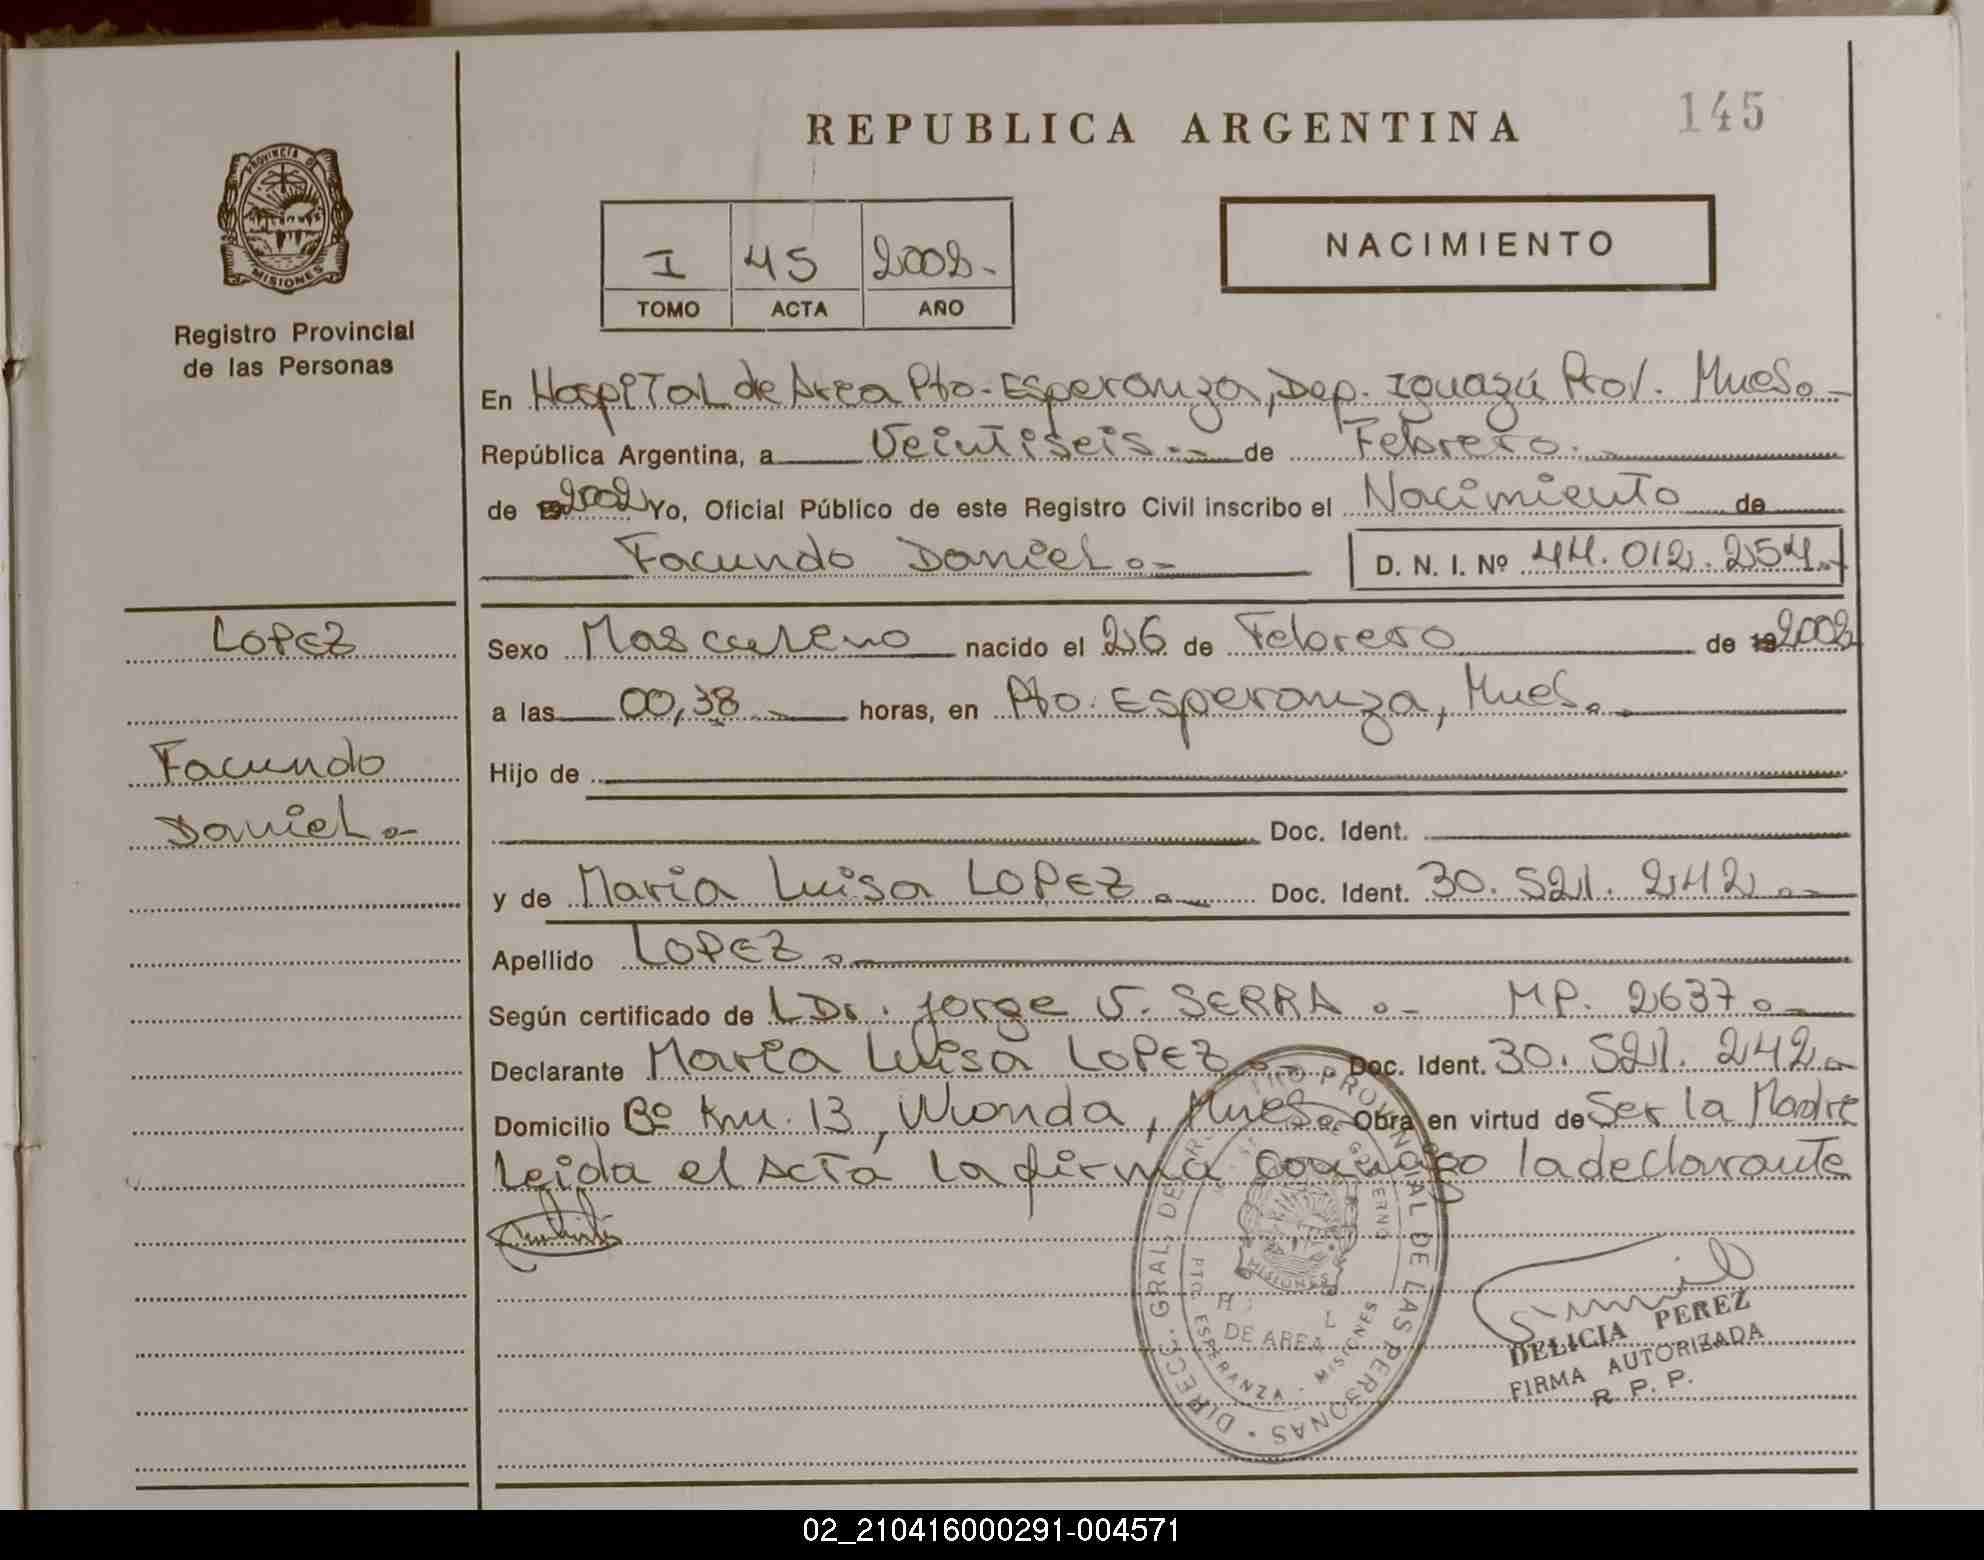 145
REPUBLICA ARGENTINA
PROVINCIA D
MISIONES
Registro Provincial
de las Personas
I 45 2002.-
TOMO ACTA AÑO
NACIMIENTO
En Hospital de Area Pto. Esperanza, Dep. Iguazú Prov. Mnes.-
República Argentina, a Veintiseis.- de Febrero.-
de 192002 Yo, Oficial Público de este Registro Civil inscribo el Nacimiento de
Facundo Daniel.- D. N. I. Nº 44.012.254.-
LOPEZ
Facundo
Daniel.-
Sexo Masculino nacido el 26 de Febrero de 192002
a las 00,38.- horas, en Pto. Esperanza, Mnes.-
Hijo de
Doc. Ident.
y de Maria Luisa LOPEZ.- Doc. Ident. 30.521.242.-
Apellido LOPEZ.-
Según certificado de L Dr. Jorge V. SERRA.- MP. 2637.-
Declarante Maria Luisa LOPEZ.- Doc. Ident. 30.521.242.-
Domicilio Bº Km. 13, Wanda, Mnes. Obra en virtud de Ser la Madre
Leida el Acta la firma conmigo la declarante
DIRECC. GRAL. DE PROVINCIAL DE LAS PERSONAS
MISIONES
DE AREA
PTO. ESPERANZA - MISIONES
DELICIA PEREZ
FIRMA AUTORIZADA
R. P. P.
02_210416000291-004571